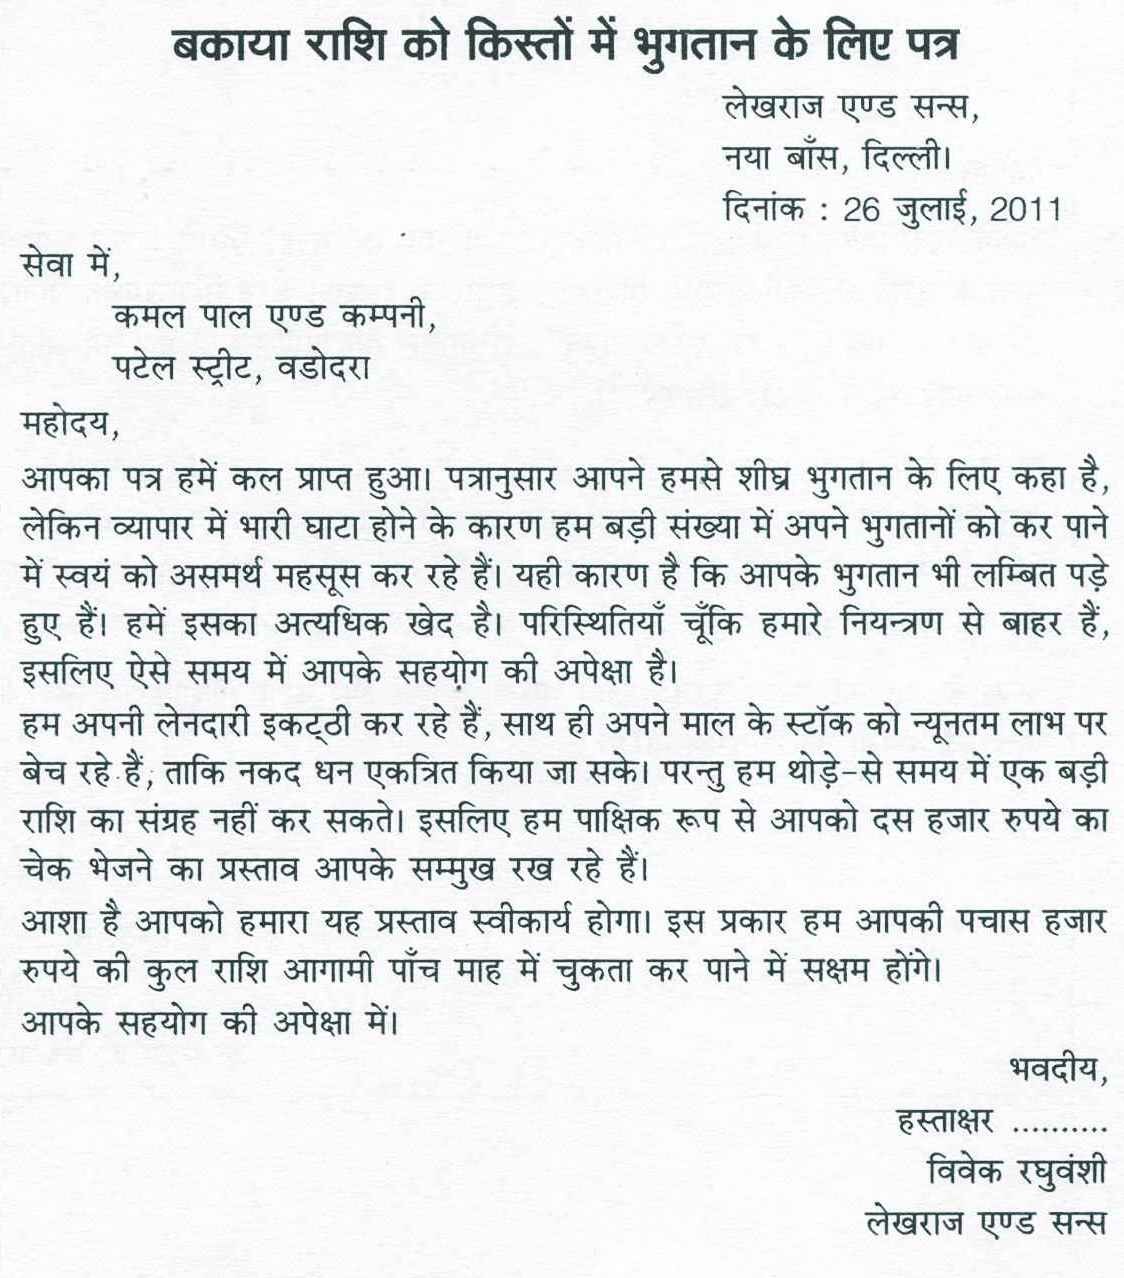 बकाया राशि को किस्तों में भुगतान के लिए पत्र
लेखराज एण्ड सन्स,
नया बाँस, दिल्ली।
दिनांक : 26 जुलाई, 2011
सेवा में,
कमल पाल एण्ड कम्पनी,
पटेल स्ट्रीट, वडोदरा
महोदय,
आपका पत्र हमें कल प्राप्त हुआ। पत्रानुसार आपने हमसे शीघ्र भुगतान के लिए कहा है,
लेकिन व्यापार में भारी घाटा होने के कारण हम बड़ी संख्या में अपने भुगतानों को कर पाने
में स्वयं को असमर्थ महसूस कर रहे हैं। यही कारण है कि आपके भुगतान भी लम्बित पड़े
हुए हैं। हमें इसका अत्यधिक खेद है। परिस्थितियाँ चूँकि हमारे नियन्त्रण से बाहर हैं,
इसलिए ऐसे समय में आपके सहयोग की अपेक्षा है।
हम अपनी लेनदारी इकट्ठी कर रहे हैं, साथ ही अपने माल के स्टॉक को न्यूनतम लाभ पर
बेच रहे हैं, ताकि नकद धन एकत्रित किया जा सके। परन्तु हम थोड़े-से समय में एक बड़ी
राशि का संग्रह नहीं कर सकते। इसलिए हम पाक्षिक रूप से आपको दस हजार रुपये का
चेक भेजने का प्रस्ताव आपके सम्मुख रख रहे हैं।
आशा है आपको हमारा यह प्रस्ताव स्वीकार्य होगा। इस प्रकार हम आपकी पचास हजार
रुपये की कुल राशि आगामी पाँच माह में चुकता कर पाने में सक्षम होंगे।
आपके सहयोग की अपेक्षा में।
भवदीय,
हस्ताक्षर ..........
विवेक रघुवंशी
लेखराज एण्ड सन्स